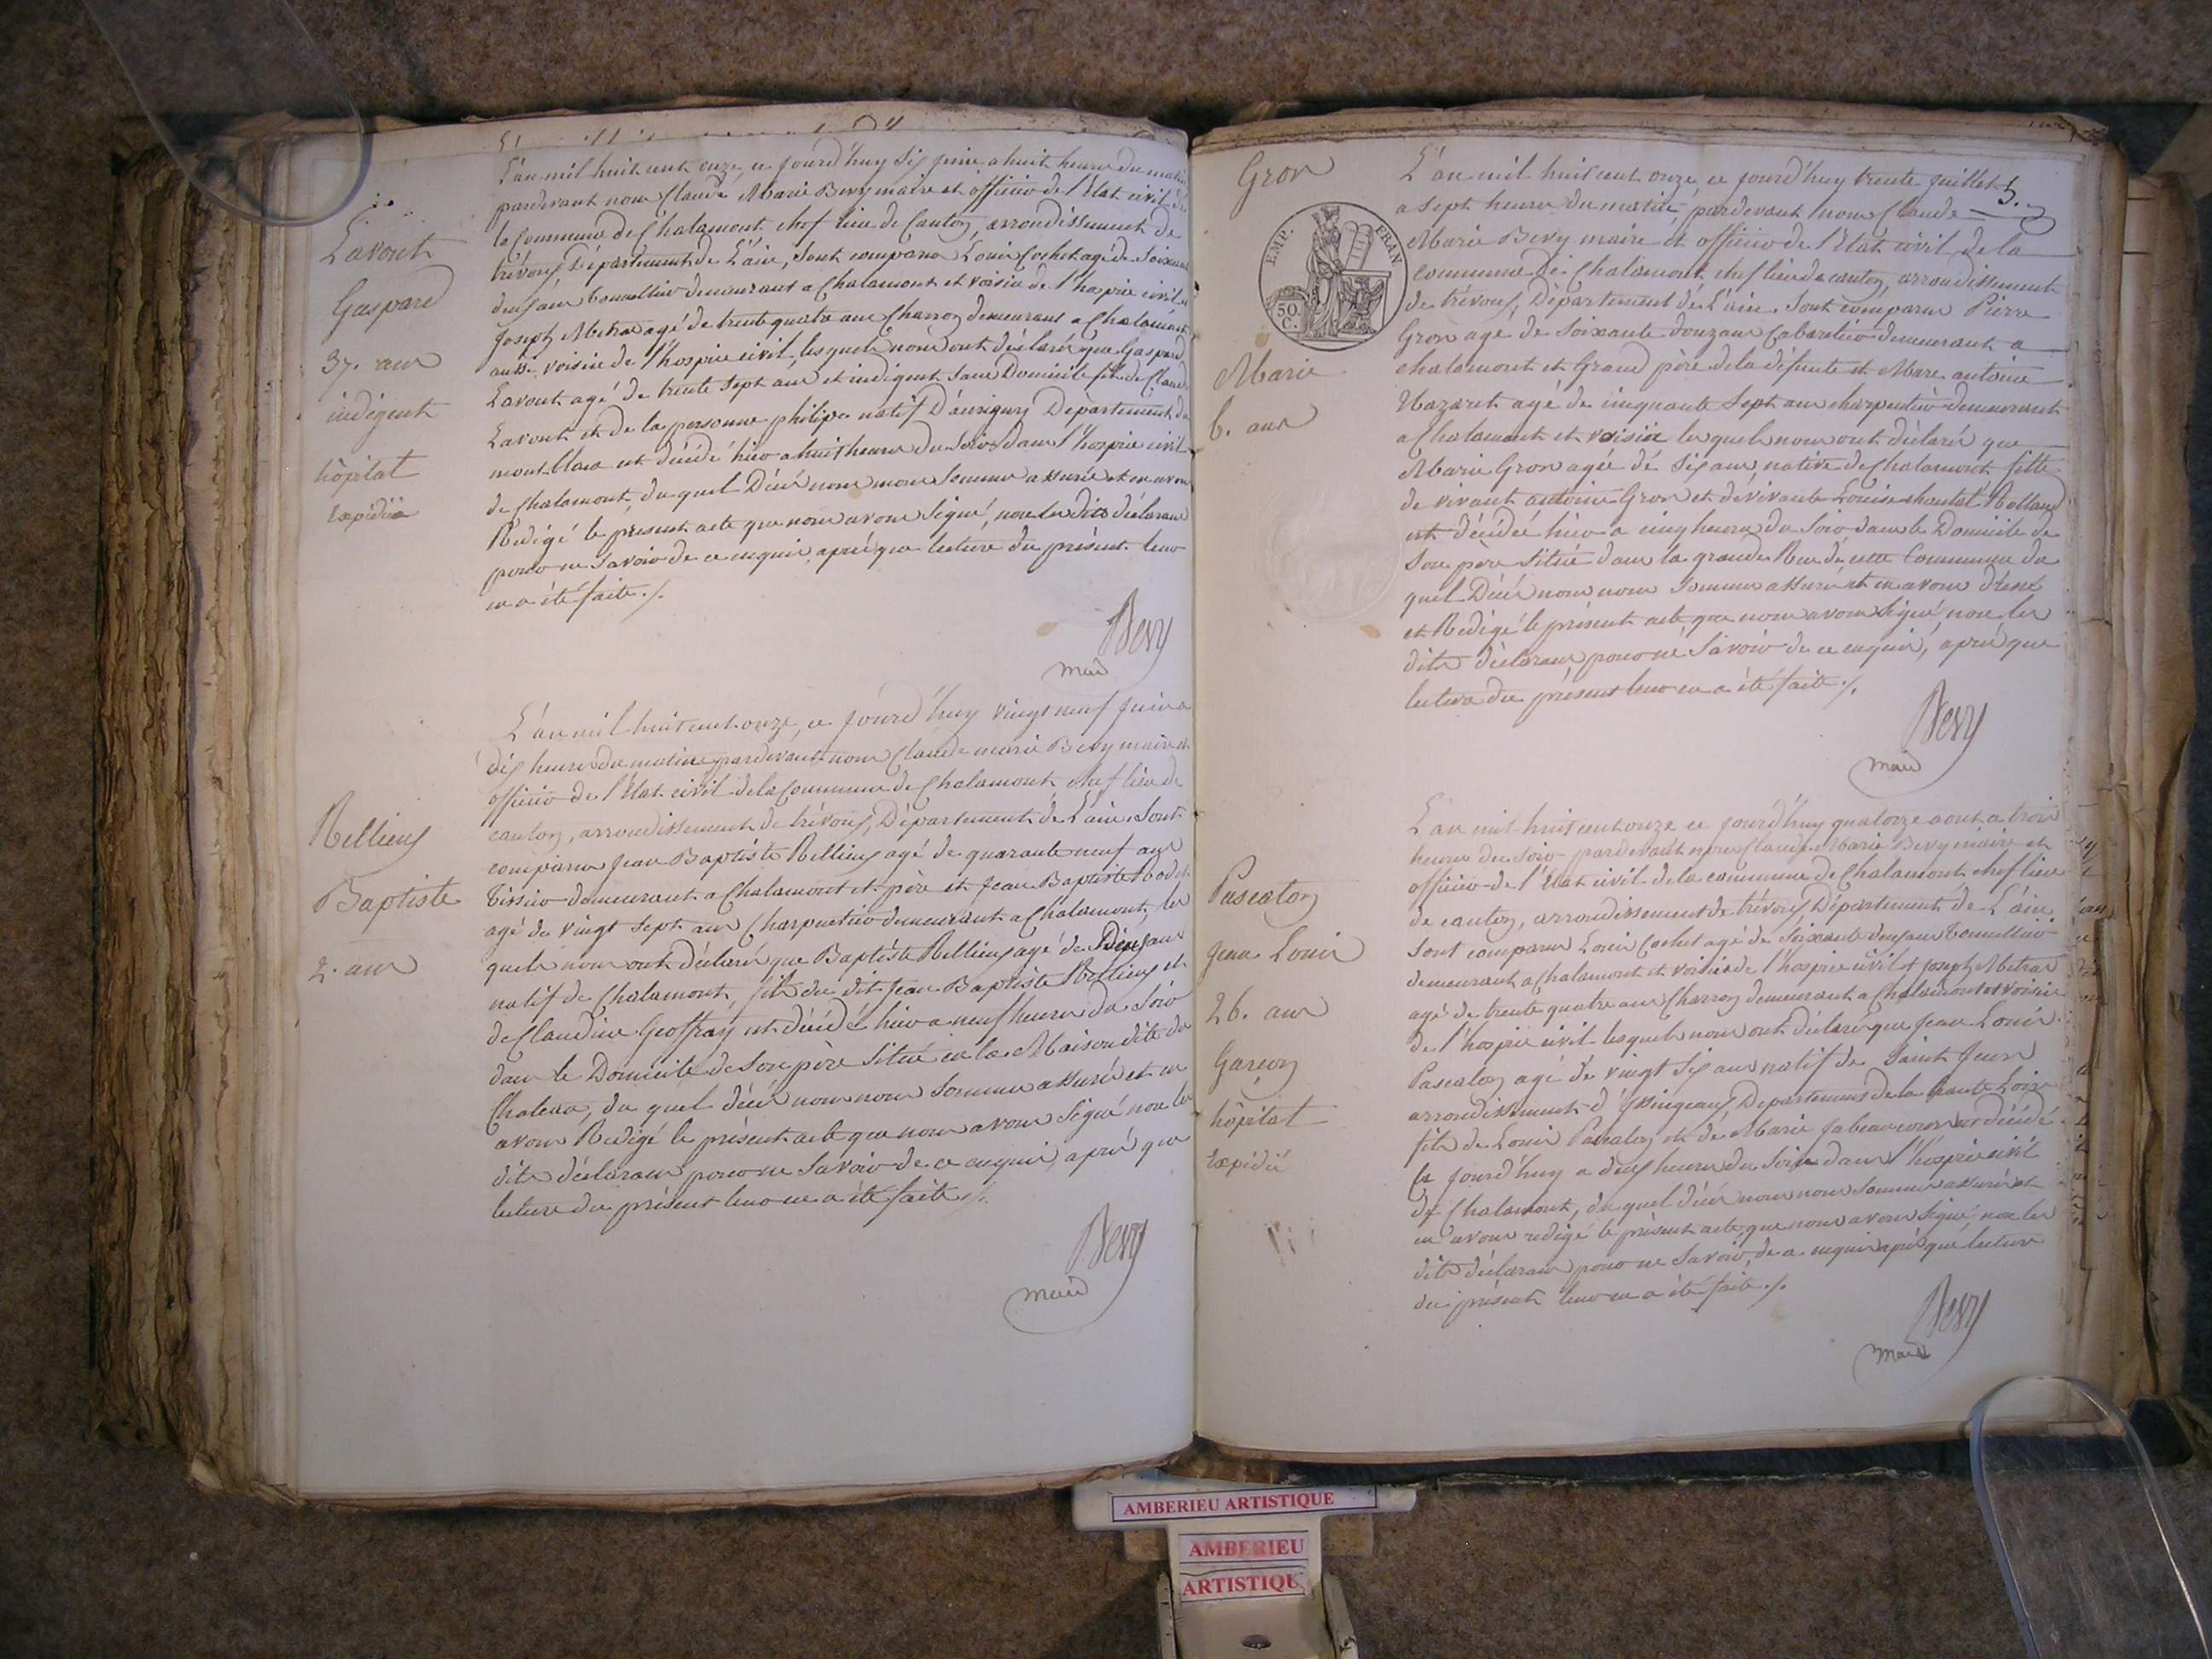 Lavout
Gaspard
37. ans
indigent
hôpital
Expédié
L'an mil huit cent onze, ce jourd'huy six juin a huit heures du matin
pardevant nous Claude Marie Bevy maire et officier de l'État civil de
la Commune de Chalamont chef lieu de Canton, arrondissement de
trévoux Département de L'ain, sont comparus Louis Cochet agé de soixante
deux ans tonnellier demeurant a Chalamont et voisin de l'hospice civil et
Joseph Metras agé de trente quatre ans Charron demeurant a Chalamont
aussi voisin de l'hospice civil, lesquels nous ont déclaré que Gaspard
Lavout agé de trente sept ans et indigent sans Domicile fils de Claude
Lavout et de la personne philipe natif D'aurigny Département du
mont blanc est décédé hier a huit heures du soir dans l'hospice civil
de Chalamont, du quel Décès nous nous sommes assurés et en avons
Rédigé le présent acte que nous avons signé, non les dits déclarans
pour ne savoir de ce enquis, après que lecture du présent leur
en a été faite ./.
Bevy
maire
Rellieux
Baptiste
2. ans
L'an mil huit cent onze, ce jourd'huy vingt neuf juin a
dix heures du matin pardevant nous Claude marie Bevy maire et
officier de l'État civil de la Commune de Chalamont chef lieu de
canton, arrondissement de trévoux, Département de L'ain. Sont
comparus Jean Baptiste Rellieux agé de quarante neuf ans
tissier demeurant a Chalamont et père et Jean Baptiste
agé de vingt sept ans Charpentier demeurant a Chalamont, les
quels nous ont déclaré que Baptiste Rellieux agé de Deux ans
natif de Chalamont, fils du dit Jean Baptiste Rellieux et
de Claudine Geoffray est décédé hier a neuf heures du soir
dans le Domicile de son père situé en la Maison dite du
Chateau, du quel décès nous nous sommes assurés et en
avons Rédigé le présent acte que nous avons signé non les
dits déclarans pour ne savoir de ce enquis, après que
lecture du présent leur en a été faite ./.
Bevy
maire
Gron
EMP. FRAN
50. C.
Marie
6. ans
5.
L'an mil huit cent onze ce jourd'huy trente juillet
a sept heures du matin, pardevant nous Claude
Marie Bevy maire et officier de l'État civil de la
commune de Chalamont chef lieu de canton, arrondissement
de trévoux, Département de L'ain. Sont comparus Pierre
Gron agé de soixante douze ans Cabaretier demeurant a
chalamont et Grand père de la défunte et Marc antoine
Nazaret agé de cinquante sept ans charpentier demeurant
a Chalamont et voisin lesquels nous ont déclaré que
Marie Gron agée de six ans, native de Chalamont fille
de vivant antoine Gron et de vivante Louise chantal Rolland
est décédée hier a cinq heures du soir dans le Domicile de
son père situé dans la grande Rue de cette Commune du
quel Décès nous nous sommes assurés et en avons dressé
et Rédigé le présent acte que nous avons signé, non les
dits déclarans pour ne savoir de ce enquis, après que
lecture du présent leur en a été faite ./.
Bevy
maire
Pascalon
Jean Louis
26. ans
Garçon
hôpital
Expédié
L'an mil huit cent onze ce jourd'huy quatorze aout a trois
heures du soir pardevant nous Claude Marie Bevy maire et
officier de l'État civil de la commune de Chalamont chef lieu
de canton, arrondissement de trévoux, Département de L'ain.
Sont comparus Louis Cochet agé de soixante deux ans tonnellier
demeurant a Chalamont et voisin de l'hospice civil et Joseph Metras
agé de trente quatre ans Charron demeurant a Chalamont et voisin
de l'hospice civil lesquels nous ont déclaré que Jean Louis
Pascalon agé de vingt six ans natif de Saint Jeure
arrondissement d'Yssingeaux Département de la haute Loire
fils de Louis Pascalon et de Marie est décédé
ce jourd'huy a deux heures du soir dans l'hospice civil
de Chalamont, du quel décès nous nous sommes assurés et
en avons redigé le présent acte, que nous avons signé, non les
dits déclarans pour ne savoir, de ce enquis après que lecture
du présent leur en a été faite ./.
Bevy
maire
AMBERIEU ARTISTIQUE
AMBERIEU
ARTISTIQUE